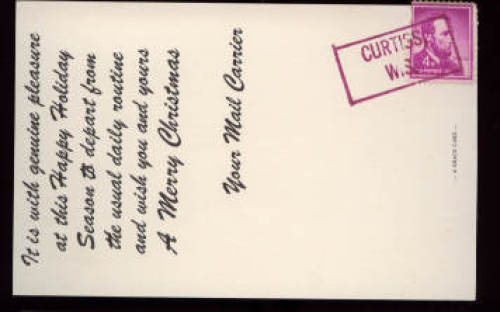 It is with genuine pleasure
at this Happy Holiday
Season to depart from
the usual daily routine
and wish you and yours
A Merry Christmas
Your Mail Carrier
CURTISS
W.S.
4¢
— A GRACE CARD —